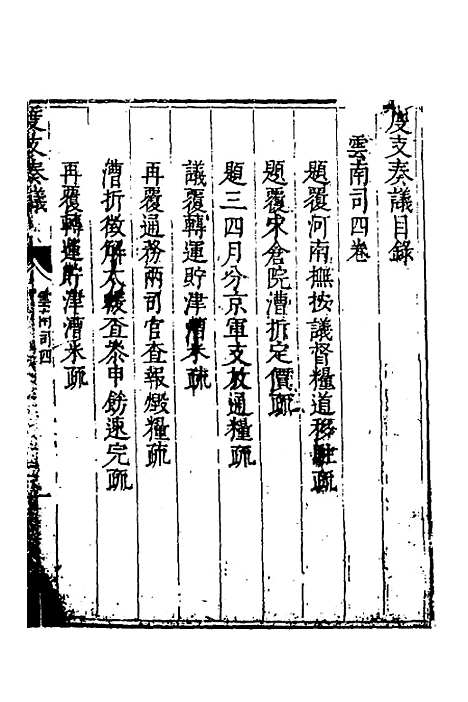 度支奏議目錄
雲南司四卷
題覆河南撫按議督糧道移駐疏
題覆宋倉院漕折定價疏
題三四月分京軍支放通糧疏
議覆轉運貯津漕米疏
再覆通務兩司官查報燬糧疏
漕折徵解太緩查參申飭速完疏
再覆轉運貯津漕米疏
度支奏議
雲南司四